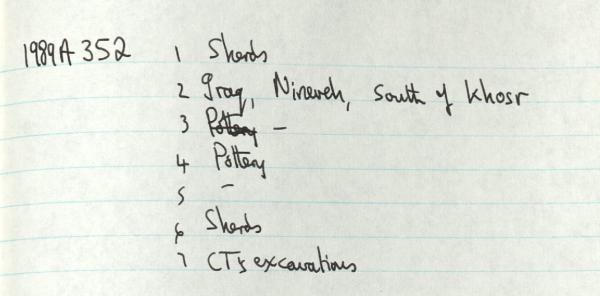 1989A 352 1 Sherds
2 Iraq, Nineveh, South of Khosr
3 Pottery –
4 Pottery
5 –
6 Sherds
7 CT's excavations